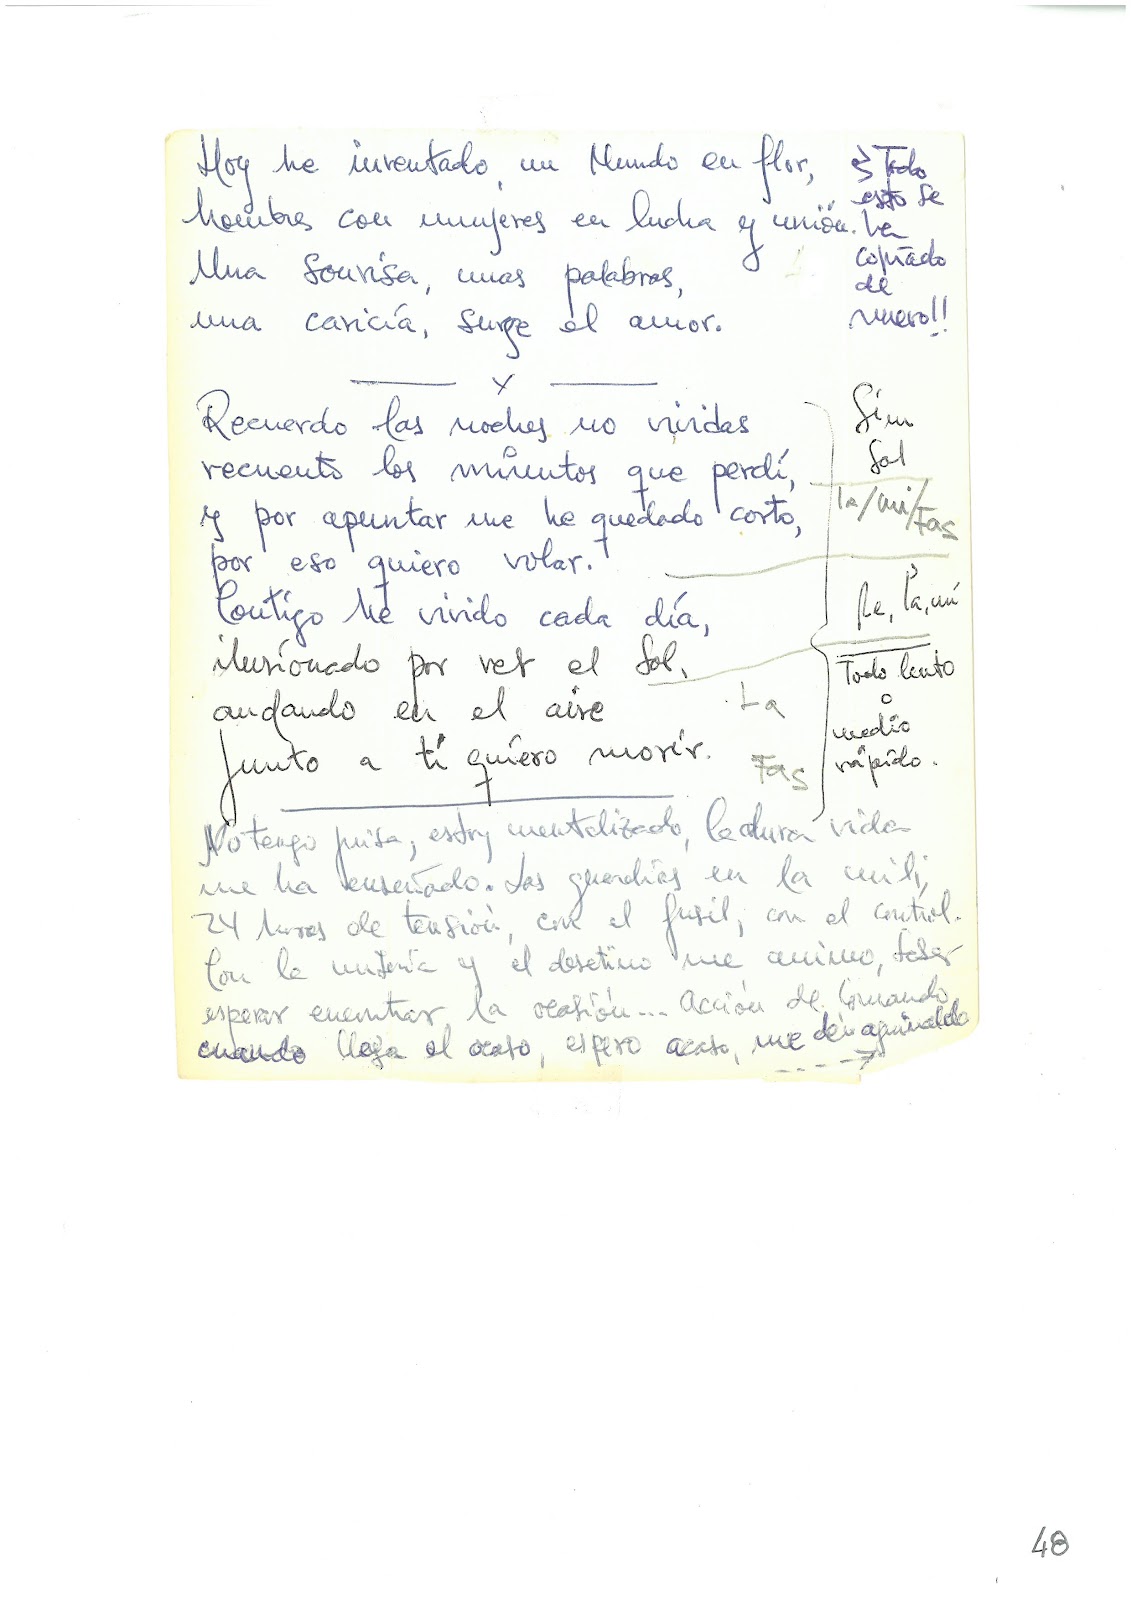 Hoy he inventado, un Mundo en flor,
hombres con mujeres en lucha y unión.
Una Sonrisa, unas palabras,
una caricia, surge el amor.
Todo
esto se
ha
copiado
de
nuevo!!
x
Recuerdo las noches no vividas
recuento los minutos que perdí,
y por apuntar me he quedado corto,
por eso quiero volar.
Contigo he vivido cada día,
ilusionado por ver el Sol,
andando en el aire
Junto a tí quiero morir.
Sim
Sol
la/mi/Fas
Re, la, mi
Todo lento
o
medio
rápido.
La
Fas
No tengo prisa, estoy mentalizado, la dura vida
me ha enseñado. Las guardias en la mili,
24 horas de tensión, con el fusil, con el control.
Con la y el me animo, saber
esperar encontrar la ocasión... Acción de Comando
cuando llega el ocaso, espero acaso, me den aguinaldo
48